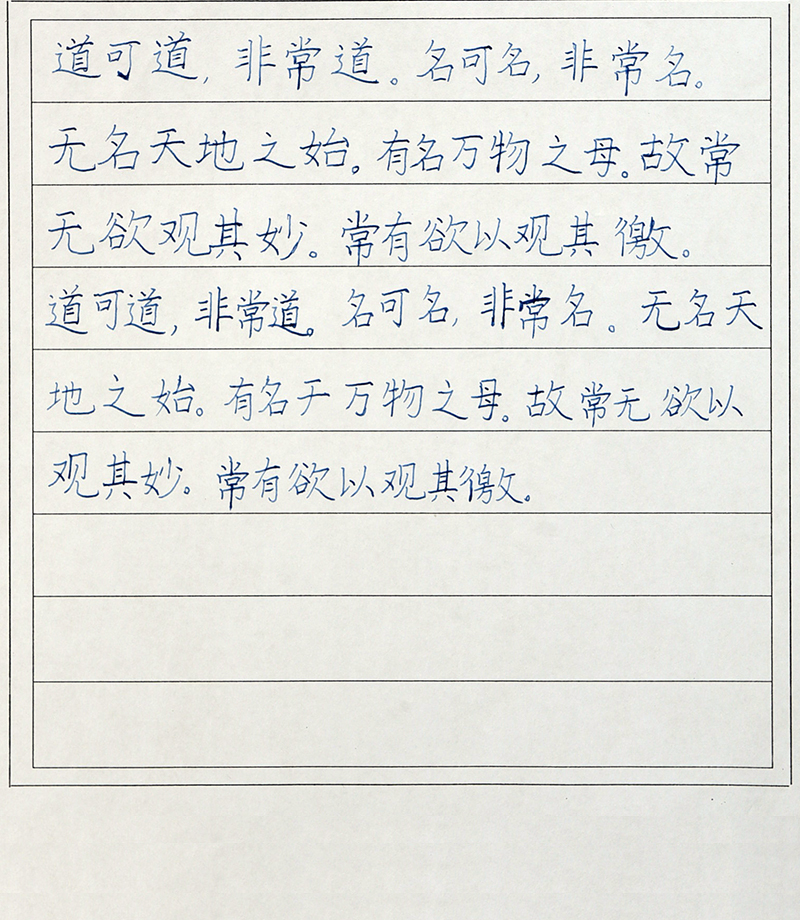 道可道，非常道。名可名，非常名。
无名天地之始。有名万物之母。故常
无欲观其妙。常有欲以观其徼。
道可道，非常道。名可名，非常名。无名天
地之始。有名于万物之母。故常无欲以
观其妙。常有欲以观其徼。